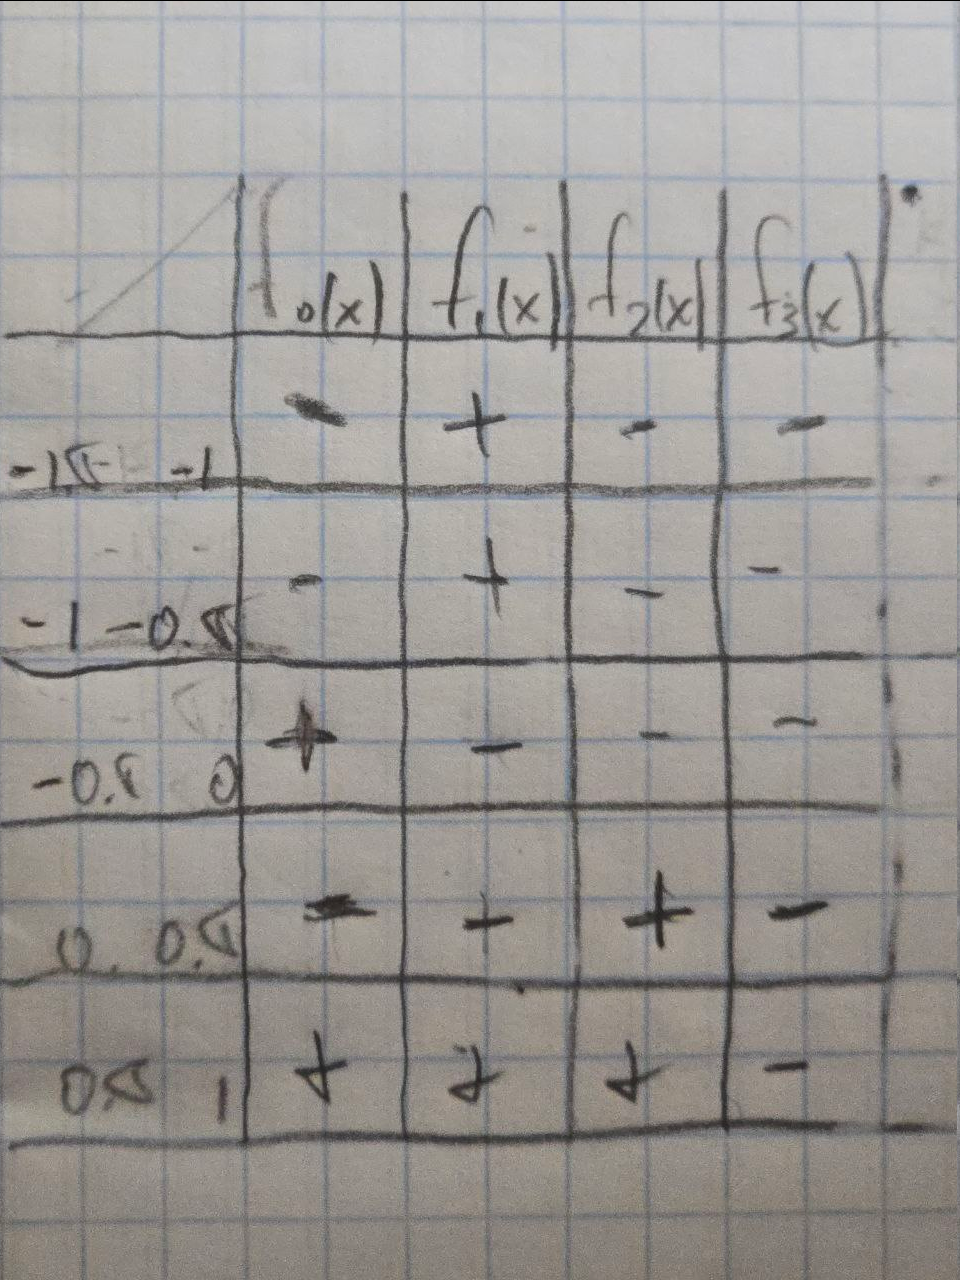 f0(x) f1(x) f2(x) f3(x)
- + - -
-1.5 -1
- + - -
-1 -0.5
+ - - -
-0.5 0
- + + -
0. 0.5
+ + + -
0.5 1